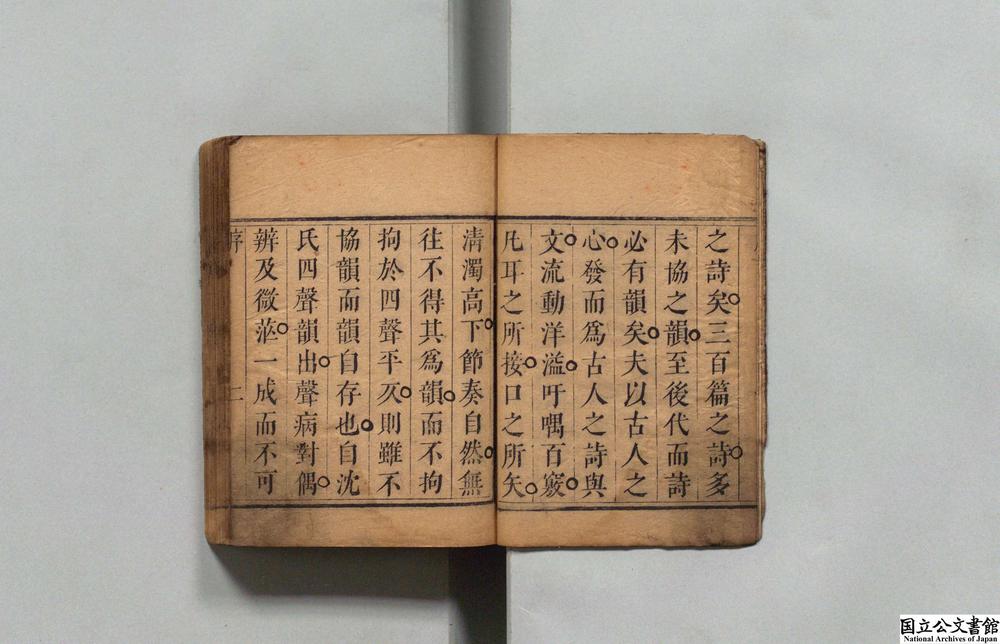 之詩矣三百篇之詩多
未協之韻至後代而詩
必有韻矣夫以古人之
心發而爲古人之詩與
文流動洋溢吁喁百竅
凢耳之所接口之所矢
清濁高下節奏自然無
徃不得其爲韻而不拘
拘於四聲平仄則雖不
協韻而韻自存也自沈
氏四聲韻出聲病對偶
辨及微茫一成而不可
序
二
国立公文書館
National Archives of Japan